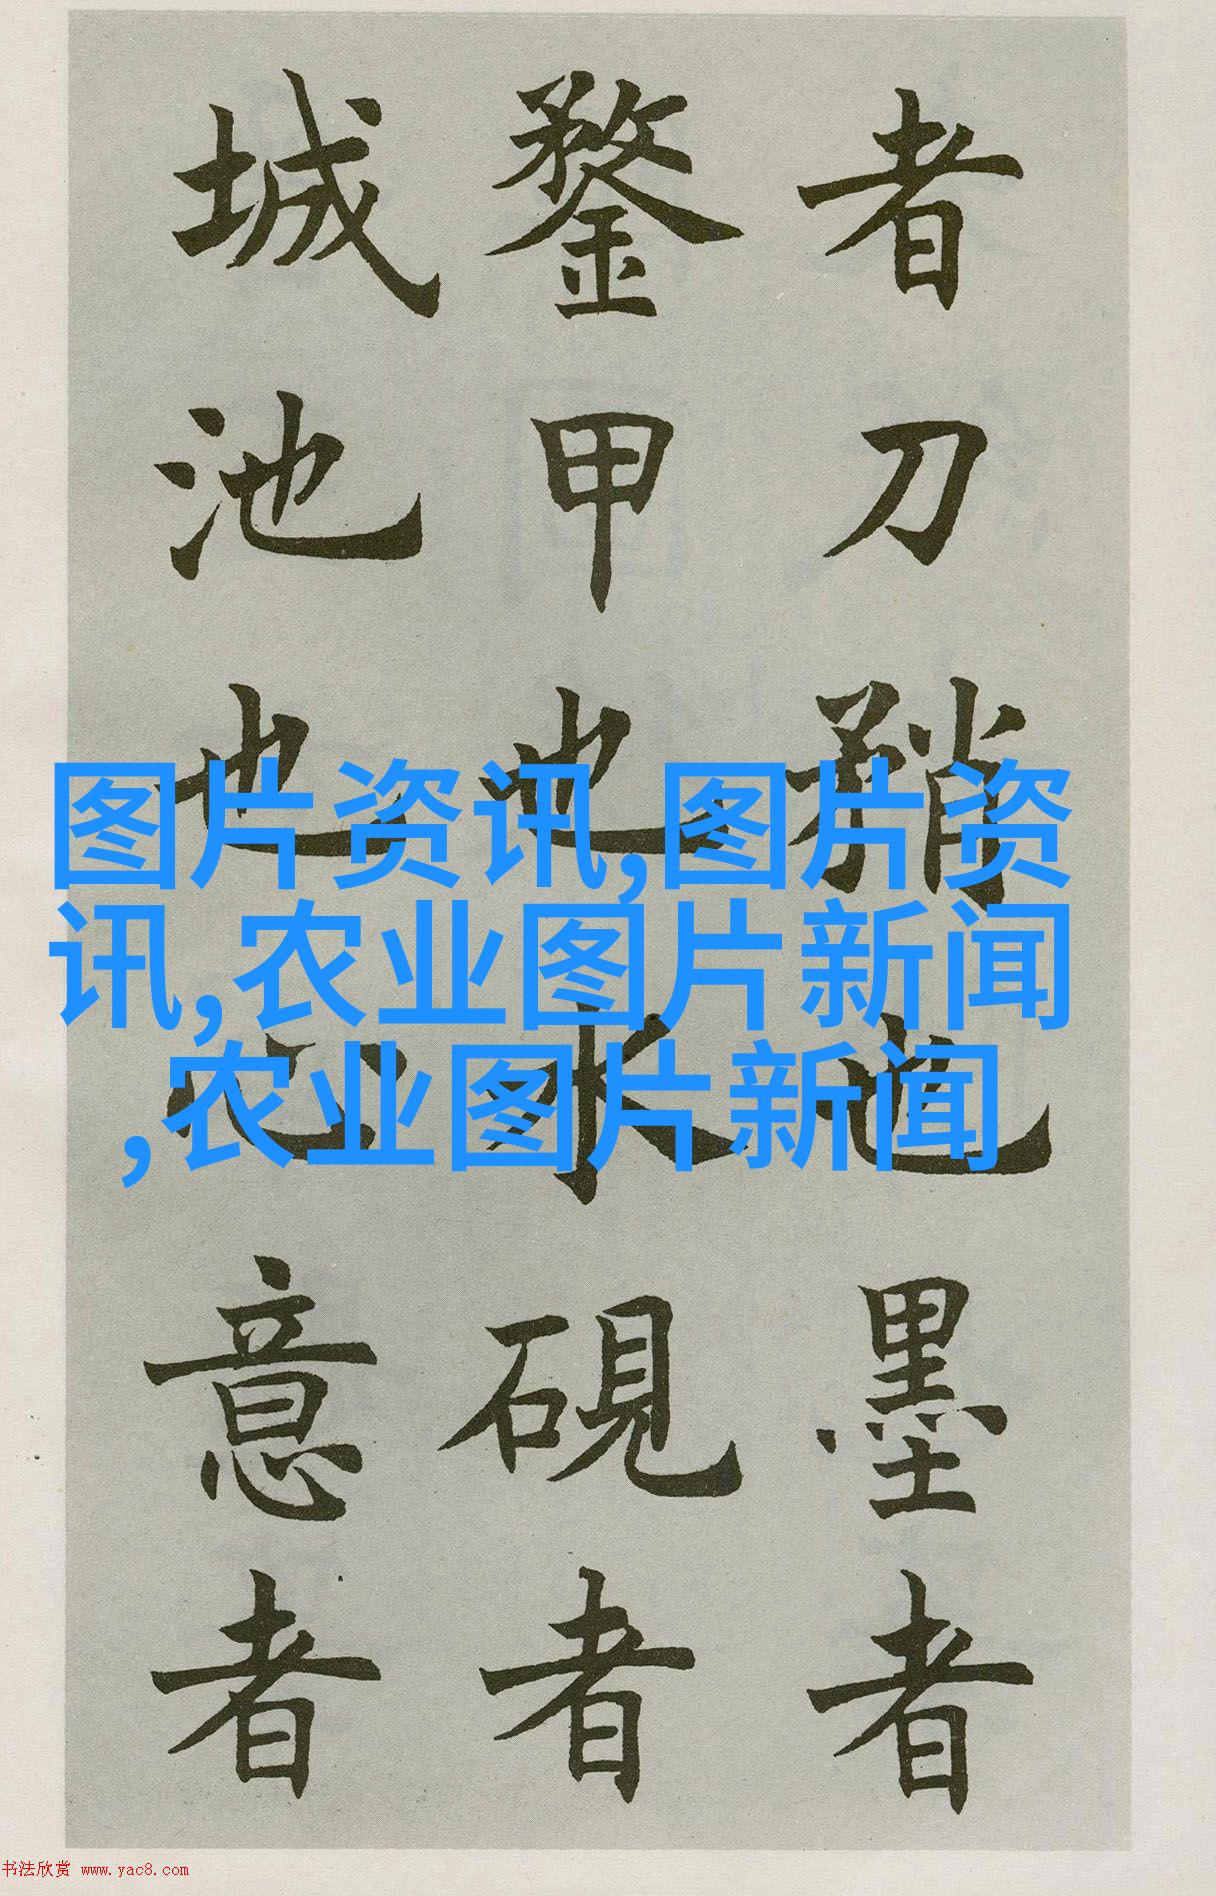 者刀矟也墨者
鍪甲也水硯者
城池也心意者
图片资讯,图片资
讯,农业图片新闻
,农业图片新闻
书法欣赏 www.yac8.com